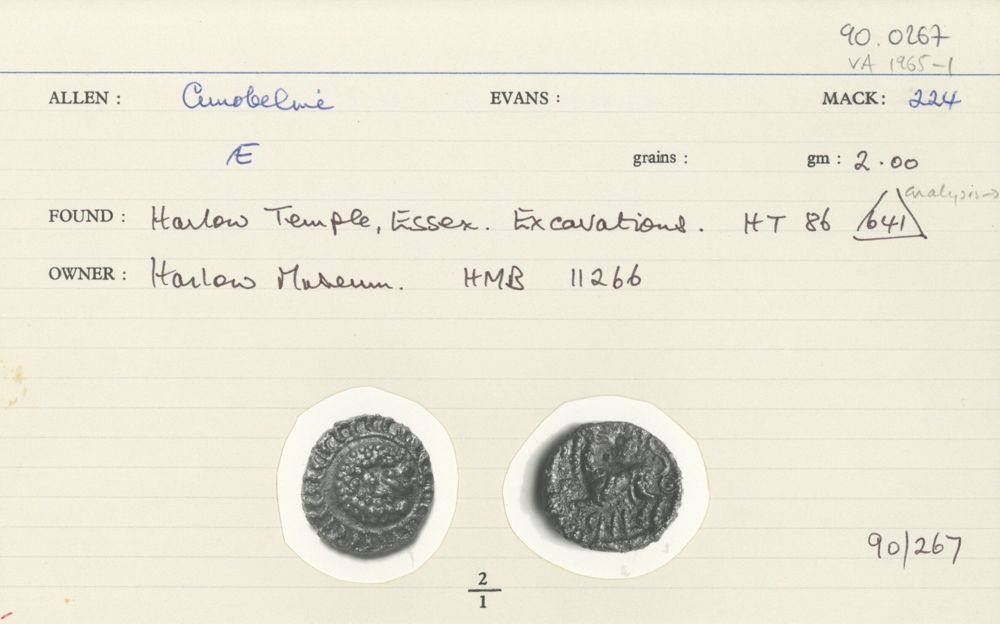 90.0267
VA 1965-1
ALLEN : Cunobeline EVANS : MACK: 224
Æ grains : gm : 2.00
analysis→
FOUND : Harlow Temple, Essex. Excavations. HT 86 641
OWNER : Harlow Museum. HMB 11266
90/267
2
1